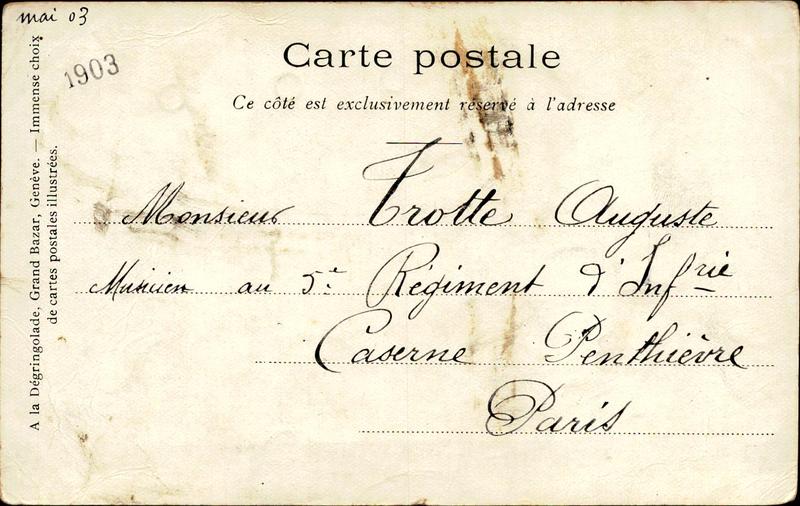 mai 03
1903
Carte postale
Ce côté est exclusivement réservé à l'adresse
Monsieur Trotte Auguste
Musicien au 5e Régiment d'Infrie
Caserne Penthièvre
Paris
A la Dégringolade, Grand Bazar, Genève. — Immense choix
de cartes postales illustrées.